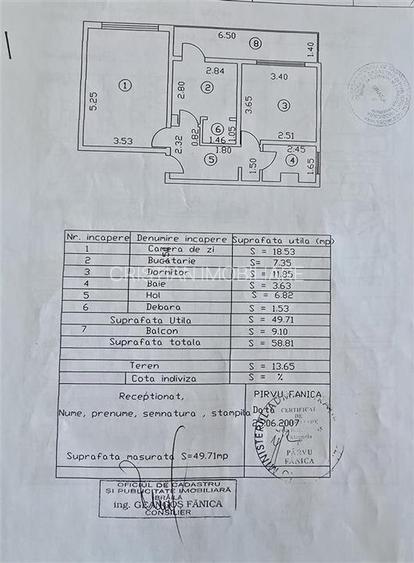 6.50
8
1.40
2.84
3.40
1
2.80
2
5.25
3.65
3
6
1.05
3.53
2.32
0.82
1.46
2.51
1.80
2.45
5
1.50
4
1.65
Nr. incapere Denumire incapere Suprafata utila (mp)
1 Camera de zi S = 18.53
2 Bucatarie S= 7.35
3 Dormitor S = 11.85
4 Baie S = 3.63
CRISTIAN IMOBILIARE
5 Hol S = 6.82
6 Debara S = 1.53
Suprafata Utila S = 49.71
7 Balcon S = 9.10
Suprafata totala S = 58.81
Teren S = 13.65
Cota indiviza S = %
Receptionat, PIRVU FANICA
Nume, prenume, semnatura , stampila Data
.06.2007
CERTIFICAT
DE
PÂRVU
FĂNICA
MINISTERUL
Suprafata masurata S=49.71mp
OFICIUL DE CADASTRU
ȘI PUBLICITATE IMOBILIARĂ
BRĂILA
ing. FĂNICA
CONSILIER